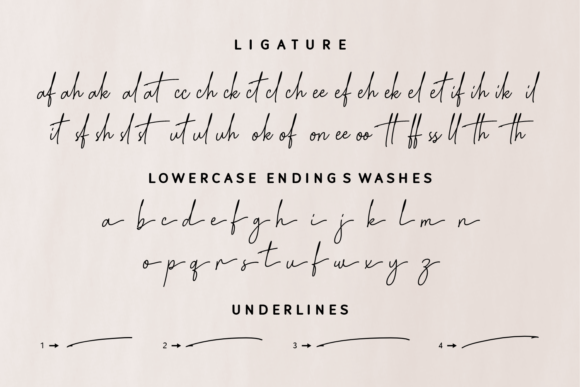 LIGATURE
af ah ak al at cc ch ck ct cl ch ee ef eh ek el et if ih ik il
it sf sh sl st ut ul uh ok of on ee oo tt ff ss ll th th
LOWERCASE ENDING SWASHES
a b c d e f g h i j k l m n
o p q r s t u f w x y z
UNDERLINES
1 → 2 → 3 → 4 →